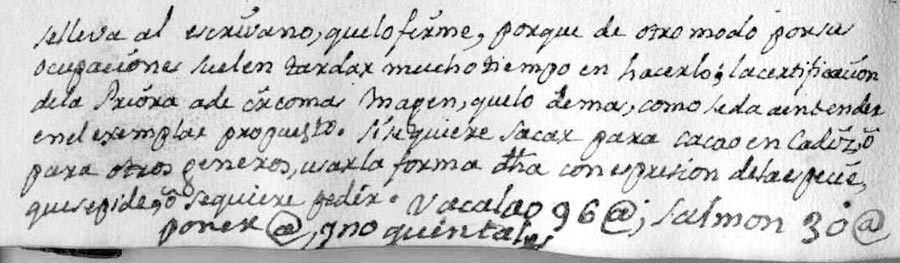 selleva al escrivano, quelo firme, porque de otro modo porsus
ocupaciones suelen tardar mucho tiempo en hacerlo; lacertificacion
dela Priora ade ir comas Margen, quelo demas, como seda aentender
enel exemplar propuesto. Si sequiere sacar para cacao en Cadiz, ō
para otros generos, usarla forma dha con espresion dela especie,
quesepide, ō sequiere pedir. Vacalao 96 @; Salmon 30 @
poner @, y no quintales